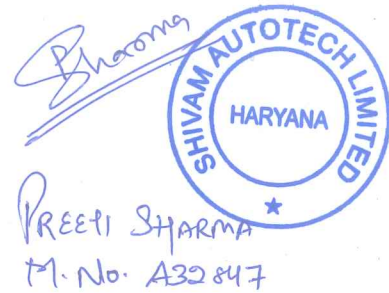 Sharma
SHIVAM AUTOTECH LIMITED
HARYANA
PREETI SHARMA
M. No. A32847